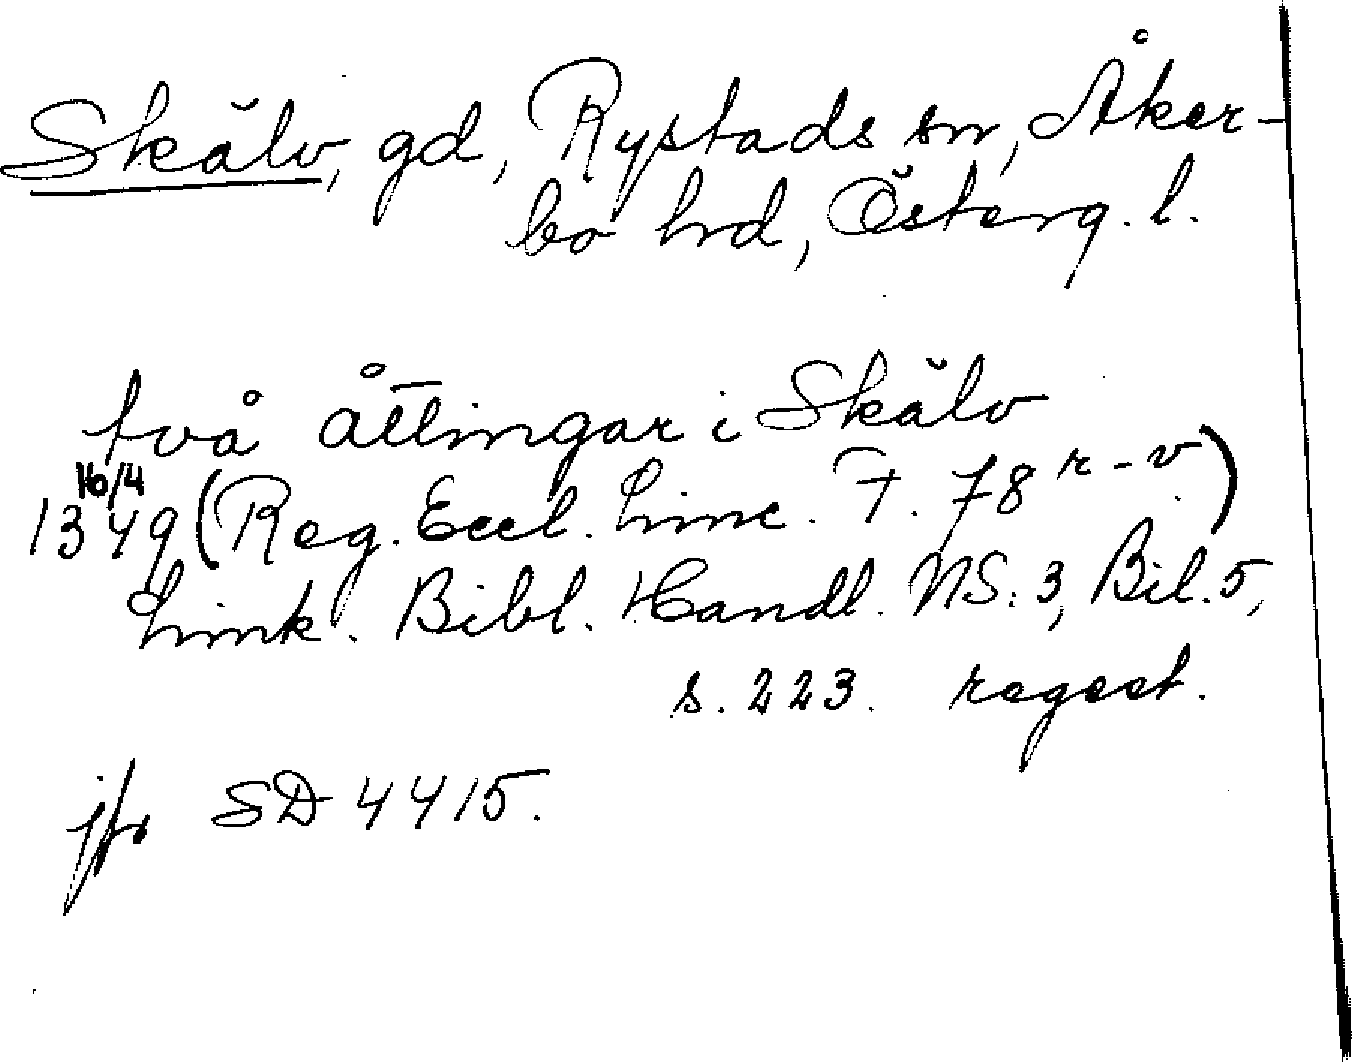 Skälv, gd, Rystads sn, Åker-
bo hrd, Österg. l.
två åttingar i Skälv
16/4
1349 (Reg. Eccl. Linc. F. 78 r-v)
Link. Bibl. Handl. NS: 3, Bil. 5,
s. 223. regest.
jfr SD 4415.